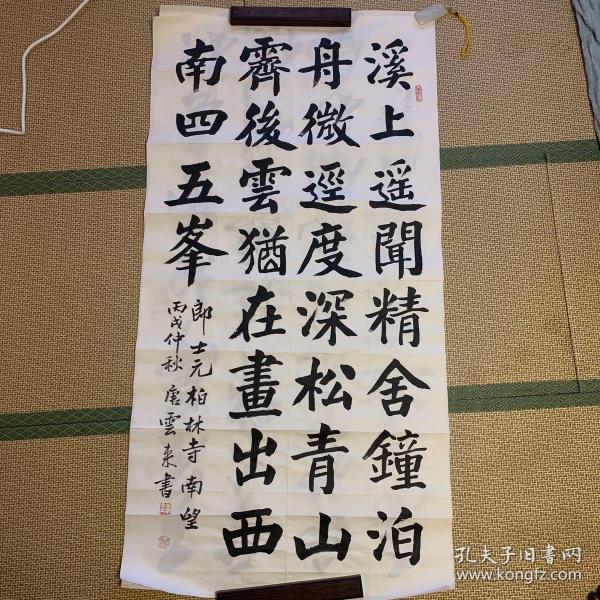 溪上遥聞精舍鐘泊
舟微逕度深松青山
霽後雲猶在畫出西
南四五峯
郎士元柏林寺南望
丙戌仲秋 唐雲來書
孔夫子旧书网
www.kongfz.com